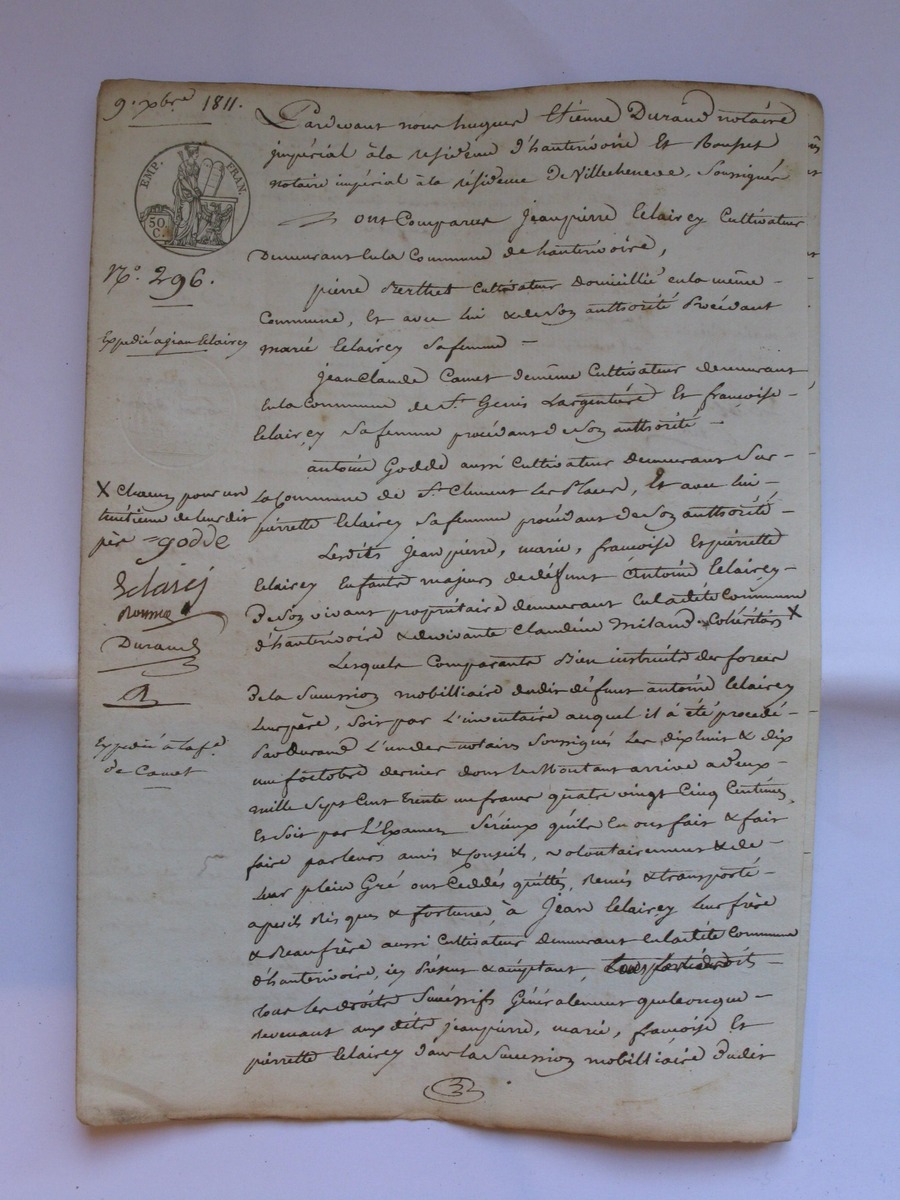 9. xbre 1811.
EMP. FRAN.
50 C.
No. 296.
Expedié a jean Eclairey
X Chacun pour un
huitieme de leur dit
père = godde
Eclairéj
Durand
Expedié à la fe.
de Camet
Pardevant nous hugues Etienne Durand notaire
impérial à la résidence d'hauterivoire Et
notaire impérial à la résidence De Villechenève, Soussignés
ont Comparus Jeanpierre Eclairey Cultivateur
Demeurant En la Commune de hauterivoire,
pierre Berthet Cultivateur domicillié en la même
Commune, Et avec lui & de Son authorité Procédant
marie Eclairey Sa femme
Jean Claude Camet de même Cultivateur demeurant
En la Commune de St. Genis Largentière Et françoise
Eclairey Sa femme procédant de Son authorité
antoine Godde aussi Cultivateur Demeurant Sur
La Commune de St. Clement Les Places, Et avec lui
pierrette Eclairey Sa femme procédant de Son authorité
Lesdits Jeanpierre, marie, françoise Et pierrette
Eclairey Enfants majeurs de défunt Antoine Eclairey
De Son vivant propriétaire demeurant En ladite Commune
d'hauterivoire & de vivante Claudine Miland. Cohéritiers X
Lesquels Comparants Bien instruits des forces
De la Succession mobilliaire dudit défunt antoine Eclairey
Leur père, Soit par L'inventaire auquel il à été procédé
Par Durand L'un des notaires Soussignés Les dix huit & dix
neuf octobre dernier dont le Montant arrive a deux
mille Sept Cent Trente un francs quatre vingt Cinq Centimes
Et Soit par L'Examen Sérieux qu'ils En ont fait & fait
faire par leurs amis & Conseils, volontairement & de
Leur plein Gré ont Cédés quittés, Remis & transporté
a perils Risques & fortune, à Jean Eclairey Leur frère
& Beaufrère aussi Cultivateur Demeurant En ladite Commune
d'hauterivoire, icy Présent & acceptant,
tous les droits Successifs Généralement quelconque
Revenant auxdits Jeanpierre, marie, françoise Et
pierrette Eclairey dans la Succession mobilliaire dudit